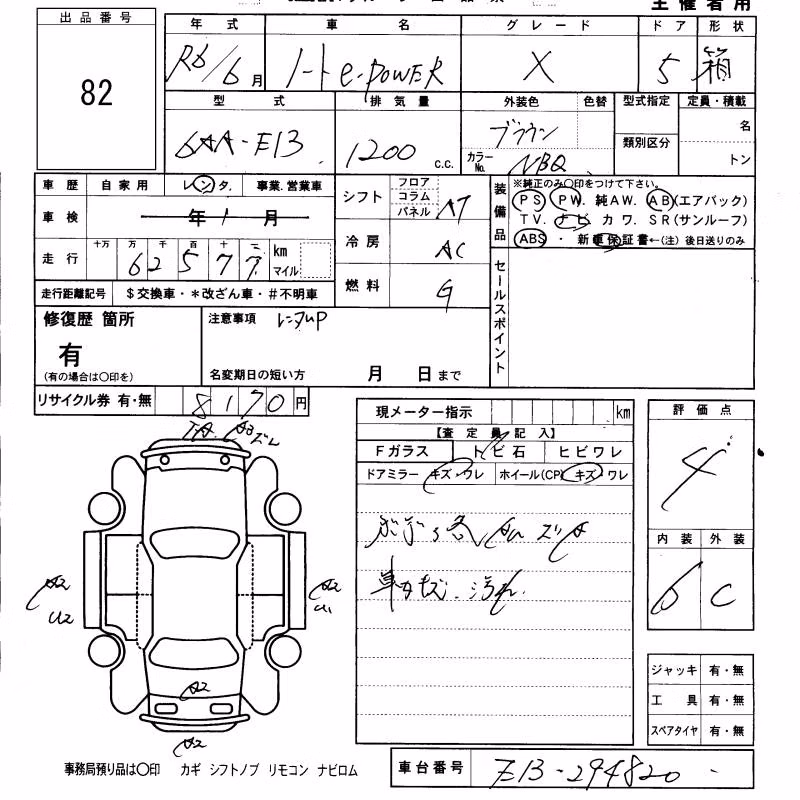 主催者用
出品番号
82
年式 車名 グレード ドア 形状
R6/6月 ノート e-POWER X 5 箱
型式 排気量 外装色 色替 型式指定 定員・積載
6AA-E13 1200 c.c. ブラウン 類別区分 名
カラーNo. NBQ トン
車歴 自家用 レンタ. 事業.営業車
車検 年 1 月
走行 十万 万 千 百 十 一 km
6 2 5 7 7 マイル
走行距離記号 $交換車・*改ざん車・#不明車
シフト フロア コラム パネル AT
冷房 AC
燃料 G
装備品 ※純正のみ○印をつけて下さい。
PS PW. 純AW. AB(エアバック)
TV. ナビ カワ. SR(サンルーフ)
ABS・ 新車保証書←(注)後日送りのみ
セールスポイント
修復歴 箇所
有
(有の場合は○印を)
注意事項 レンタUP
名変期日の短い方 月 日まで
リサイクル券 有・無 8170円
現メーター指示 km
【査定員記入】
Fガラス トビ石 ヒビワレ
ドアミラー キズ・ワレ ホイール(CP) キズ・ワレ
キズ・汚れ
評価点
4
内装 外装
B C
A2
U2
A2
U1
A2
A2
ジャッキ 有・無
工具 有・無
スペアタイヤ 有・無
事務局預り品は○印 カギ シフトノブ リモコン ナビロム
車台番号 E13-294820